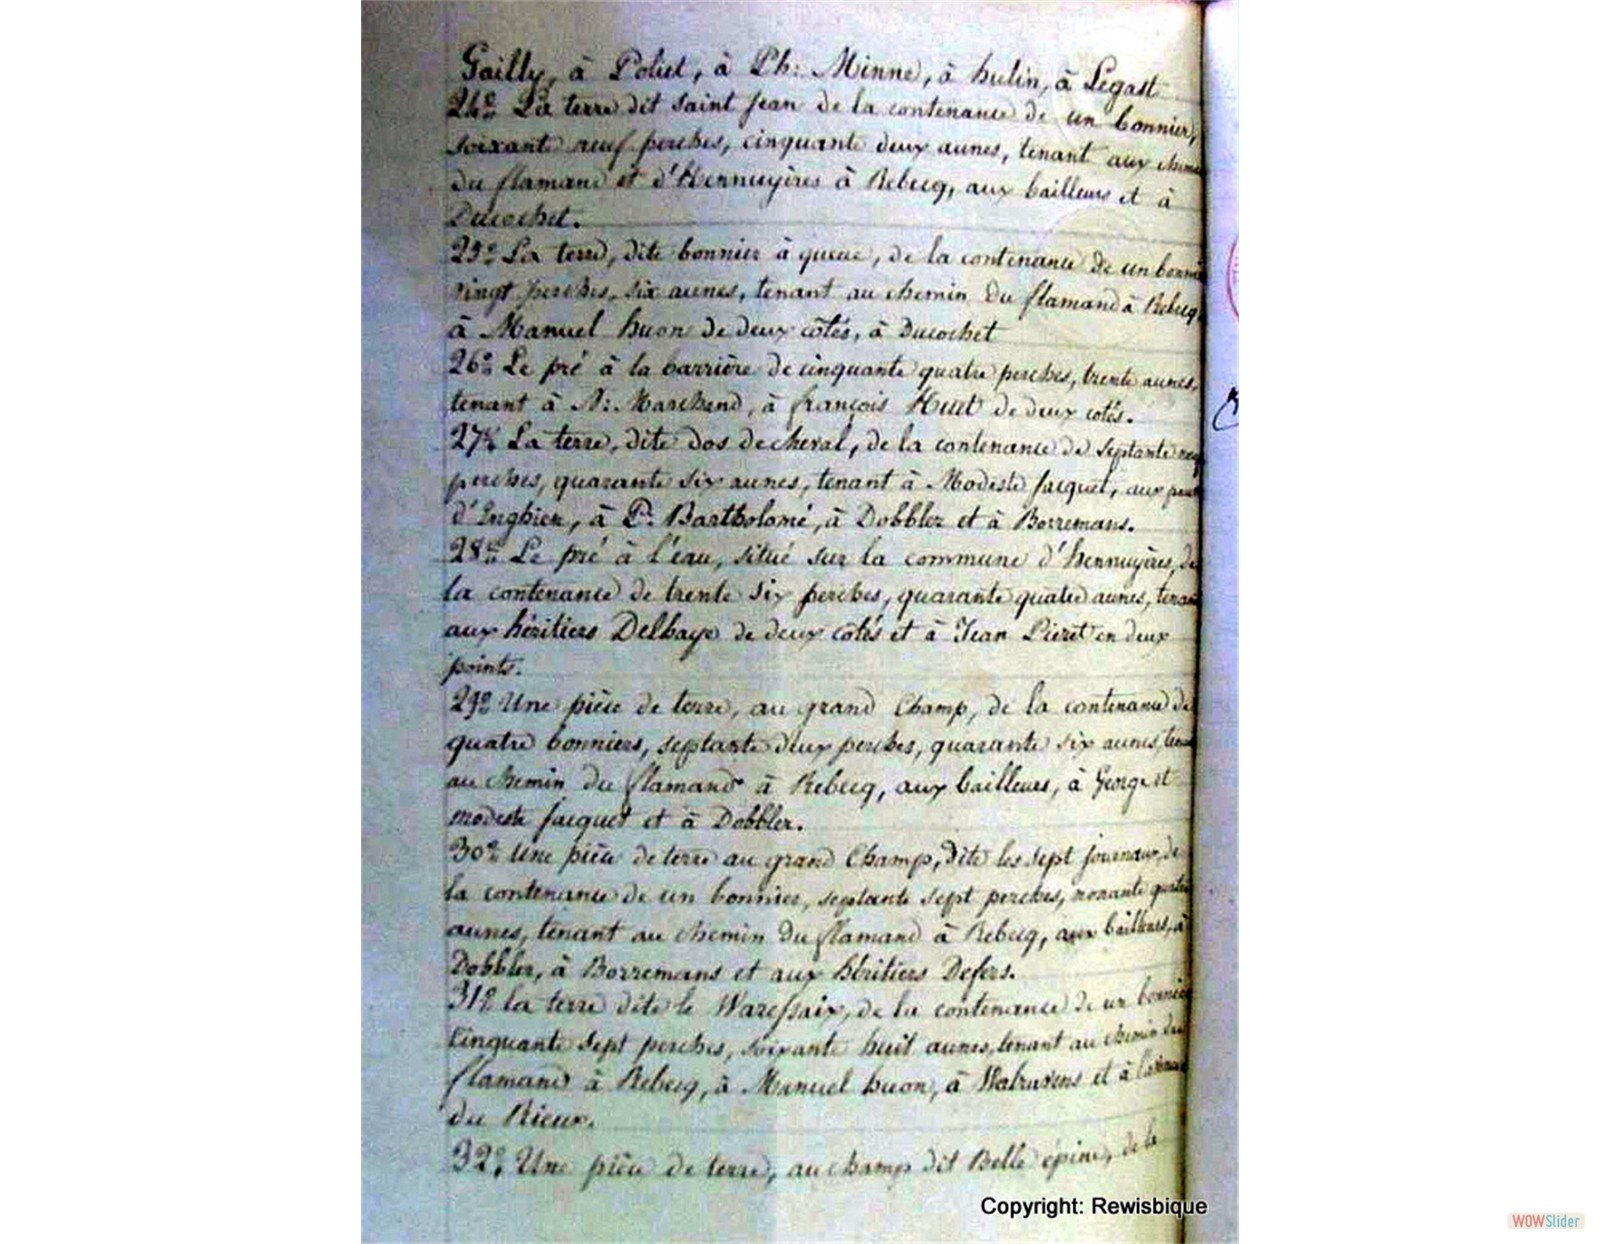 Gailly, à Poliet, à Ph: Minne, à hulin, à Legast
24º La terre dit Saint Jean de la contenance de un bonnier,
soixante neuf perches, cinquante deux aunes, tenant aux
du flamand et d'Hennuyères à Rebecq, aux bailleurs et à
Ducochet.
25º La terre, dite bonnier à queue, de la contenance de un
vingt perches, six aunes, tenant au chemin du flamand à Rebecq,
à Manuel huon de deux côtés, à Ducochet
26º Le pré à la barrière de cinquante quatre perches, trente aunes,
tenant à N: Marchand, à françois Huet de deux cotés.
27º La terre, dite dos de cheval, de la contenance de septante
perches, quarante six aunes, tenant à Modeste Jacquet, aux
d'Enghien, à P. Bartholomé, à Dobbler et à Borremans.
28º Le pré à l'eau, situé sur la commune d'hennuyères, de
la contenance de trente six perches, quarante quatre aunes,
aux héritiers Delhaye de deux cotés et à Jean Pieret en deux
points.
29º Une pièce de terre, au grand Champ, de la contenance de
quatre bonniers, septante deux perches, quarante six aunes,
au chemin du flamand à Rebecq, aux bailleurs, à George et
modeste Jacquet et à Dobbler.
30º Une pièce de terre au grand Champ, dite les sept journaux, de
la contenance de un bonnier, septante sept perches, nonante quatre
aunes, tenant au chemin du flamand à Rebecq, aux bailleurs, à
Dobbler, à Borremans et aux héritiers Defers.
31º la terre dite le Waressaix, de la contenance de un bonnier
Cinquante sept perches, soixante huit aunes, tenant au chemin du
flamand à Rebecq, à Manuel huon, à Walravens et à
du Rieux.
32º Une pièce de terre, au champ dit Belle épine, de la
Copyright: Rewisbique
WOWSlider